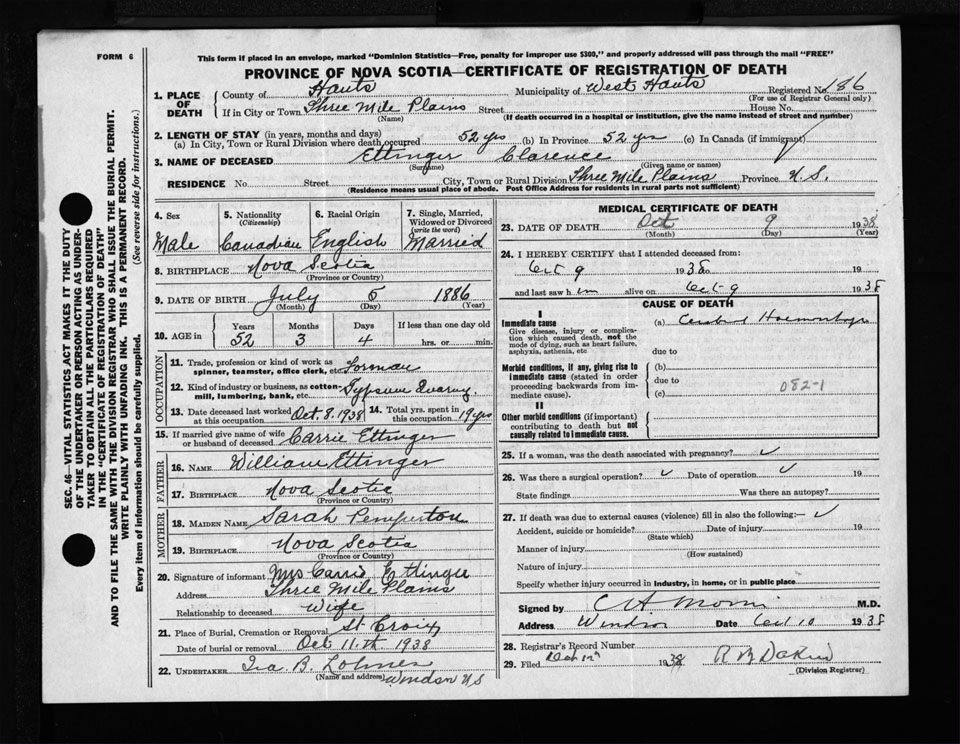 FORM 6
This form if placed in an envelope, marked "Dominion Statistics—Free, penalty for improper use $300," and properly addressed will pass through the mail "FREE"
PROVINCE OF NOVA SCOTIA—CERTIFICATE OF REGISTRATION OF DEATH
1. PLACE OF DEATH
County of Hants Municipality of West Hants Registered No. 186
(For use of Registrar General only)
If in City or Town Three Mile Plains Street House No.
(Name) (If death occurred in a hospital or institution, give the name instead of street and number)
2. LENGTH OF STAY (in years, months and days)
(a) In City, Town or Rural Division where death occurred 52 yrs (b) In Province 52 yrs (c) In Canada (if immigrant)
3. NAME OF DECEASED Ettinger Clarence
(Surname) (Given name or names)
RESIDENCE No. Street City, Town or Rural Division Three Mile Plains Province N.S.
(Residence means usual place of abode. Post Office Address for residents in rural parts not sufficient)
4. Sex
Male
5. Nationality (Citizenship)
Canadian
6. Racial Origin
English
7. Single, Married, Widowed or Divorced (write the word)
Married
8. BIRTHPLACE Nova Scotia
(Province or Country)
9. DATE OF BIRTH July 5 1886
(Month) (Day) (Year)
10. AGE in Years Months Days If less than one day old
52 3 4 hrs. or min.
OCCUPATION
11. Trade, profession or kind of work as spinner, teamster, office clerk, etc. Forman
12. Kind of industry or business, as cotton-mill, lumbering, bank, etc. Gypsum Quarry
13. Date deceased last worked at this occupation Oct. 8. 1938 14. Total yrs. spent in this occupation 19 yrs
15. If married give name of wife or husband of deceased Carrie Ettinger
FATHER
16. NAME William Ettinger
17. BIRTHPLACE Nova Scotia
(Province or Country)
MOTHER
18. MAIDEN NAME Sarah Pemperton
19. BIRTHPLACE Nova Scotia
(Province or Country)
20. Signature of informant Mrs Carrie Ettinger
Address Three Mile Plains
Relationship to deceased Wife
21. Place of Burial, Cremation or Removal St. Croix
Date of burial or removal Oct 11.th 1938
22. UNDERTAKER Ira B.
(Name and address) Windsor N S
MEDICAL CERTIFICATE OF DEATH
23. DATE OF DEATH Oct 9 1938
(Month) (Day) (Year)
24. I HEREBY CERTIFY that I attended deceased from:
Oct 9 1938 to 19
and last saw him alive on Oct 9 1938
CAUSE OF DEATH
I
Immediate cause
Give disease, injury or complication which caused death, not the mode of dying, such as heart failure, asphyxia, asthenia, etc
(a) Cerebral Haemorrhage
due to
Morbid conditions, if any, giving rise to immediate cause (stated in order proceeding backwards from immediate cause).
(b)
due to 082-1
(c)
II
Other morbid conditions (if important) contributing to death but not causally related to immediate cause.
25. If a woman, was the death associated with pregnancy?
26. Was there a surgical operation? Date of operation 19
State findings Was there an autopsy?
27. If death was due to external causes (violence) fill in also the following:—
Accident, suicide or homicide? Date of injury 19
(State which)
Manner of injury
(How sustained)
Nature of injury
Specify whether injury occurred in industry, in home, or in public place
Signed by M.D.
Address Windsor Date Oct 10 1938
28. Registrar's Record Number
29. Filed 1938
(Division Registrar)
SEC. 46—VITAL STATISTICS ACT MAKES IT THE DUTY
OF THE UNDERTAKER OR PERSON ACTING AS UNDER-
TAKER TO OBTAIN ALL THE PARTICULARS REQUIRED
IN THE "CERTIFICATE OF REGISTRATION OF DEATH"
AND TO FILE THE SAME WITH THE DIVISION REGISTRAR WHO SHALL ISSUE THE BURIAL PERMIT.
WRITE PLAINLY WITH UNFADING INK. THIS IS A PERMANENT RECORD.
Every item of information should be carefully supplied. (See reverse side for instructions.)